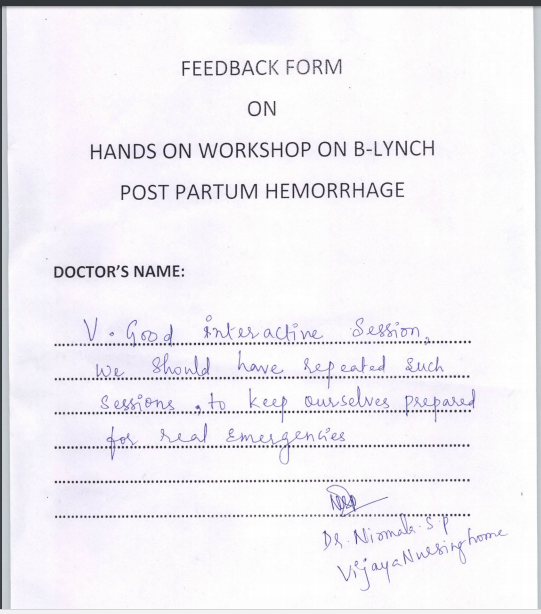 FEEDBACK FORM
ON
HANDS ON WORKSHOP ON B-LYNCH
POST PARTUM HEMORRHAGE
DOCTOR'S NAME:
V. Good interactive Session,
we should have repeated such
Sessions, to keep ourselves prepared
for real Emergencies
Dr. Nirmala. S P
Vijaya Nursing home